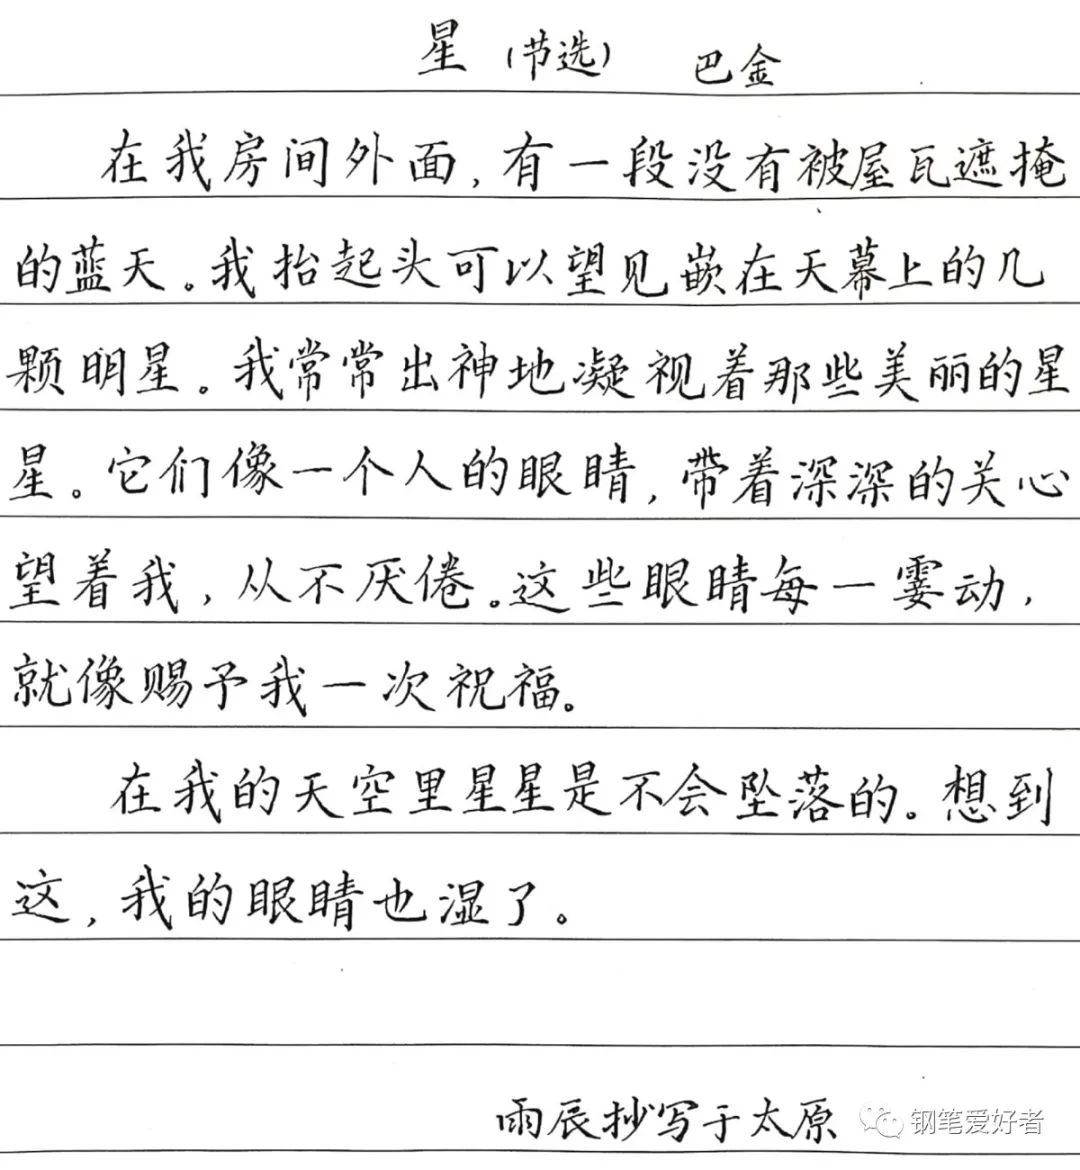 星 (节选) 巴金
在我房间外面,有一段没有被屋瓦遮掩
的蓝天。我抬起头可以望见嵌在天幕上的几
颗明星。我常常出神地凝视着那些美丽的星
星。它们像一个人的眼睛,带着深深的关心
望着我,从不厌倦。这些眼睛每一霎动,
就像赐予我一次祝福。
在我的天空里星星是不会坠落的。想到
这,我的眼睛也湿了。
雨辰抄写于太原 钢笔爱好者